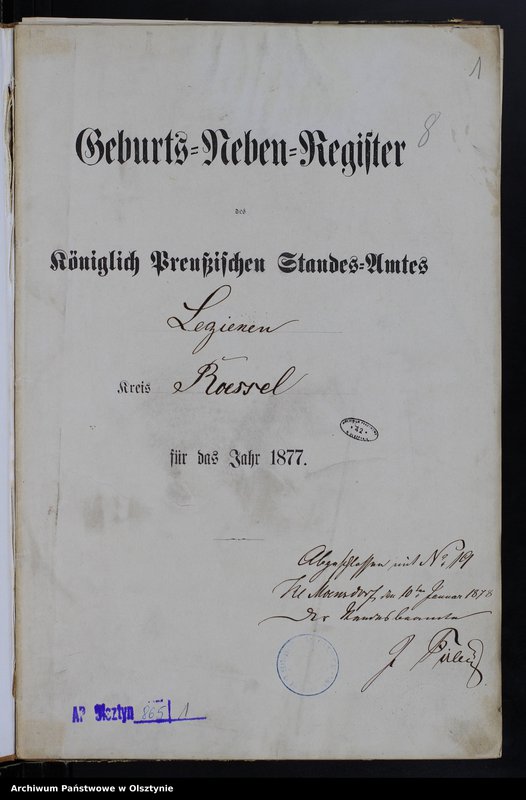 1
8
Geburts-Neben-Register
des
Königlich Preußischen Standes-Amtes
Legienen
Kreis Roessel
für das Jahr 1877.
Abgeschlossen mit No. 119
Kl. Moensdorf, den 10ten Januar 1878
Der Standesbeamte
AP Olsztyn 865/1
Archiwum Państwowe w Olsztynie